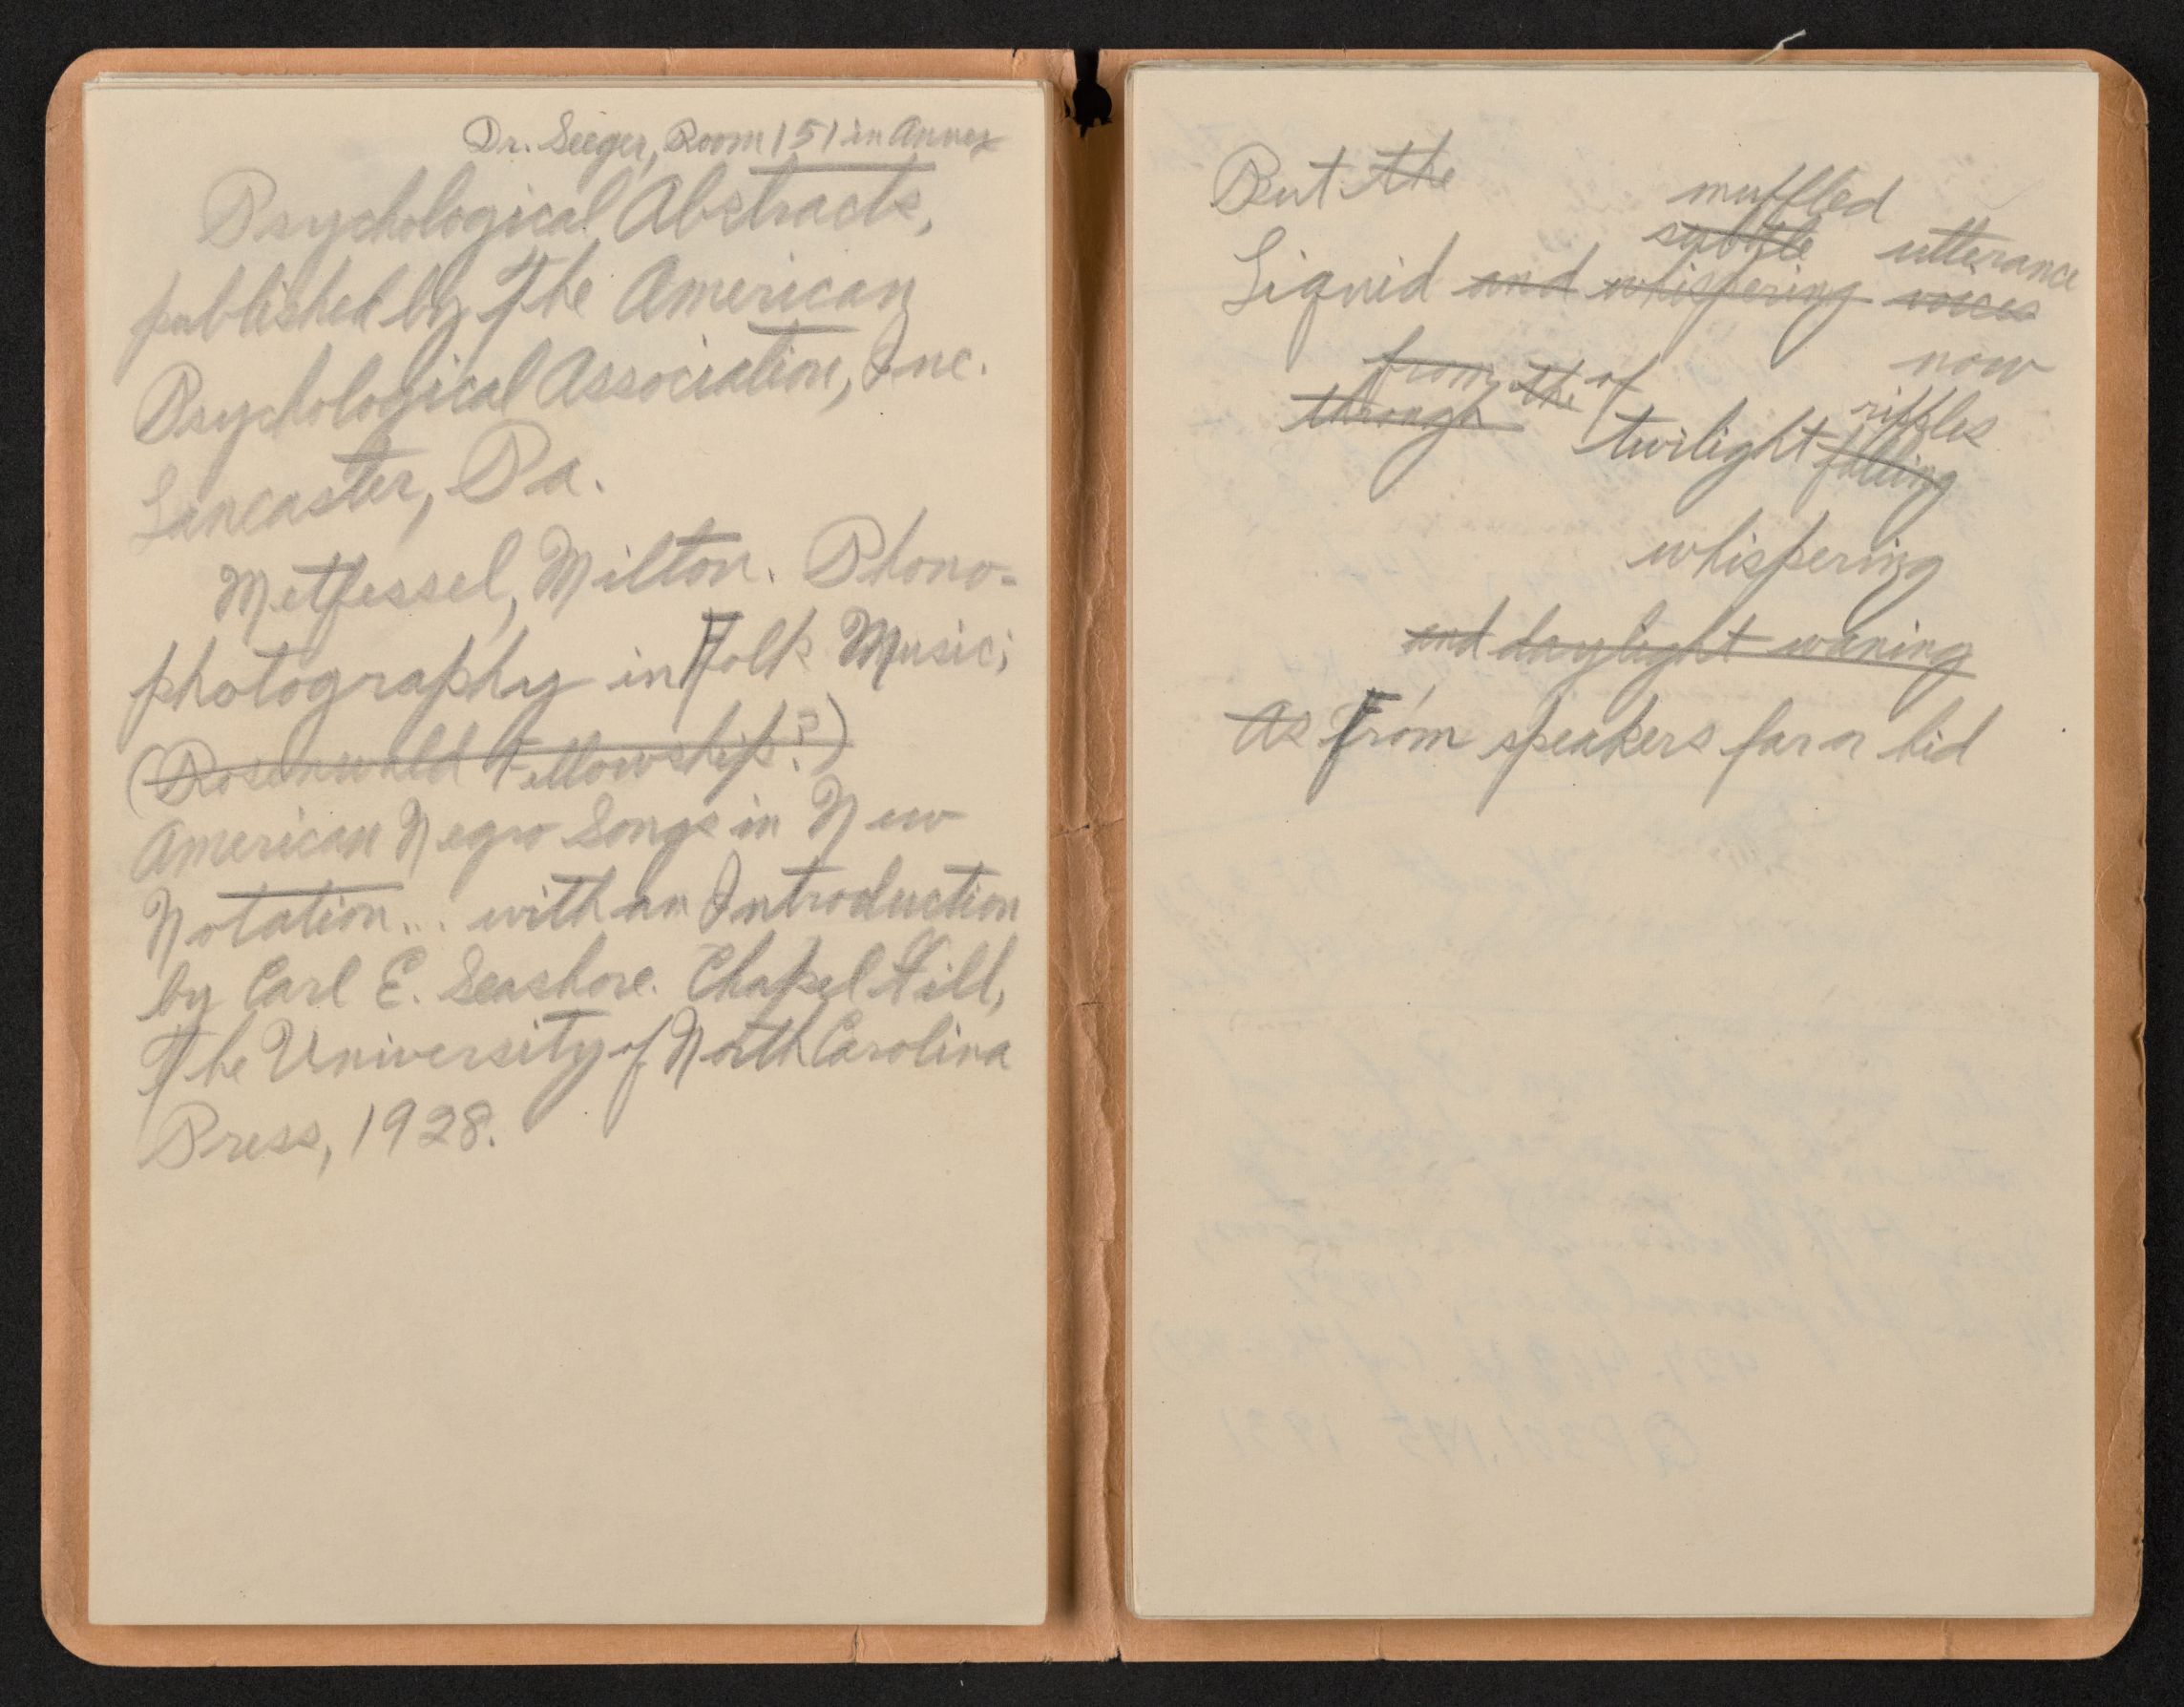 Dr. Seeger, Room 151 in Annex
Psychological Abstracts,
published by The American
Psychological Association, Inc.
Lancaster, Pa.
Metfessel, Milton. Phono-
photography in Folk Music;
(Rosenwald Fellowship?)
American Negro Songs in New
Notation... with an Introduction
by Carl E. Seashore. Chapel Hill,
The University of North Carolina
Press, 1928.
But the
muffled
subtle utterance
Liquid and whispering voices
now
from the of
through
riffles
twilight falling
whispering
and daylight waning
As From speakers far or hid